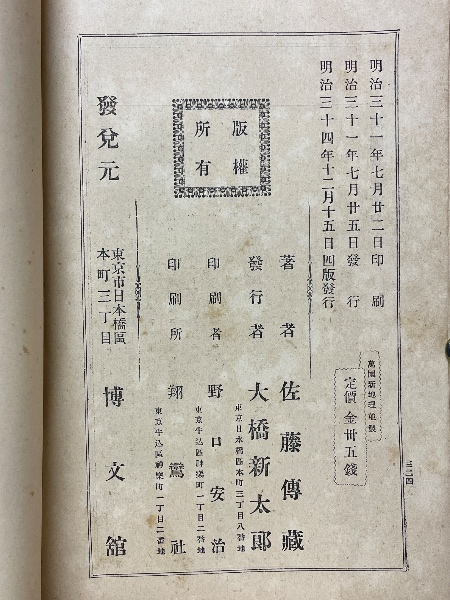 明治三十一年七月廿二日印刷
明治三十一年七月廿五日發行
明治三十四年十二月十五日四版發行
萬國新地理
定價金卅五錢
三二四
版權
所有
著者 佐藤傳藏
發行者 大橋新太郎
東京日本橋區本町三丁目八番地
印刷者 野口安治
東京牛込區神樂町一丁目二番地
印刷所 翔鸞社
東京牛込區神樂町一丁目二番地
發兌元
東京市日本橋區
本町三丁目
博文館